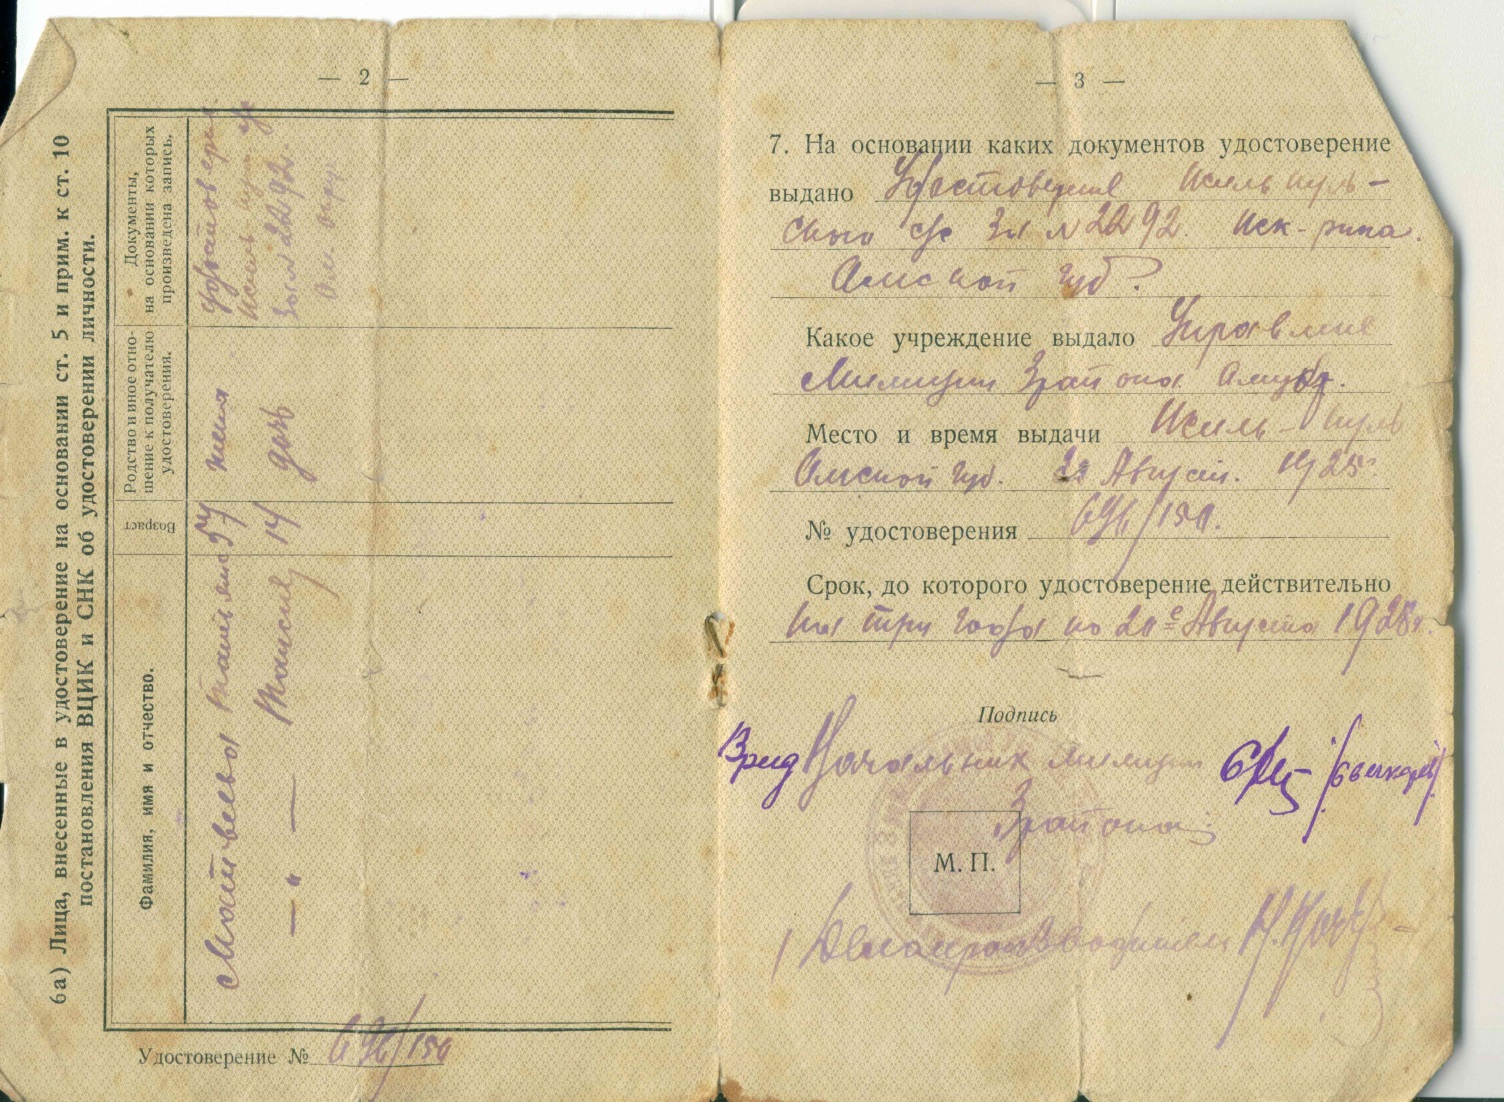 — 2 —
6а) Лица, внесенные в удостоверение на основании ст. 5 и прим. к ст. 10
постановления ВЦИК и СНК об удостоверении личности.
Фамилия, имя и отчество.
Возраст
Родство и иное отно-
шение к получателю
удостоверения.
Документы,
на основании которых
произведена запись.
Матвеева жена
— „ — Таисия 14 дочь
за № 2292.
Удостоверение № 696/150
— 3 —
7. На основании каких документов удостоверение
выдано Удостоверение Исиль куль-
ского с/с За № 2292. Иск-рика.
Омской губ.
Какое учреждение выдало Управление
Милиции 3 района Омгуб.
Место и время выдачи Исиль-куль
Омской губ. Август. 1925.
№ удостоверения 696/150.
Срок, до которого удостоверение действительно
на три года по 20е Августа 1928 г.
Подпись
Врид Начальник милиции
3 района
М. П.
Делопроизводитель